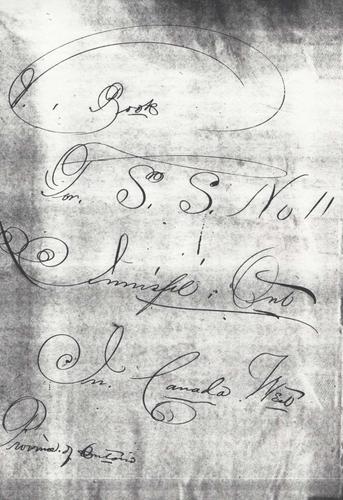 A. Book
For. S. S. No 11
Innisfil. Ont
In. Canada. West
Province. of Ontario